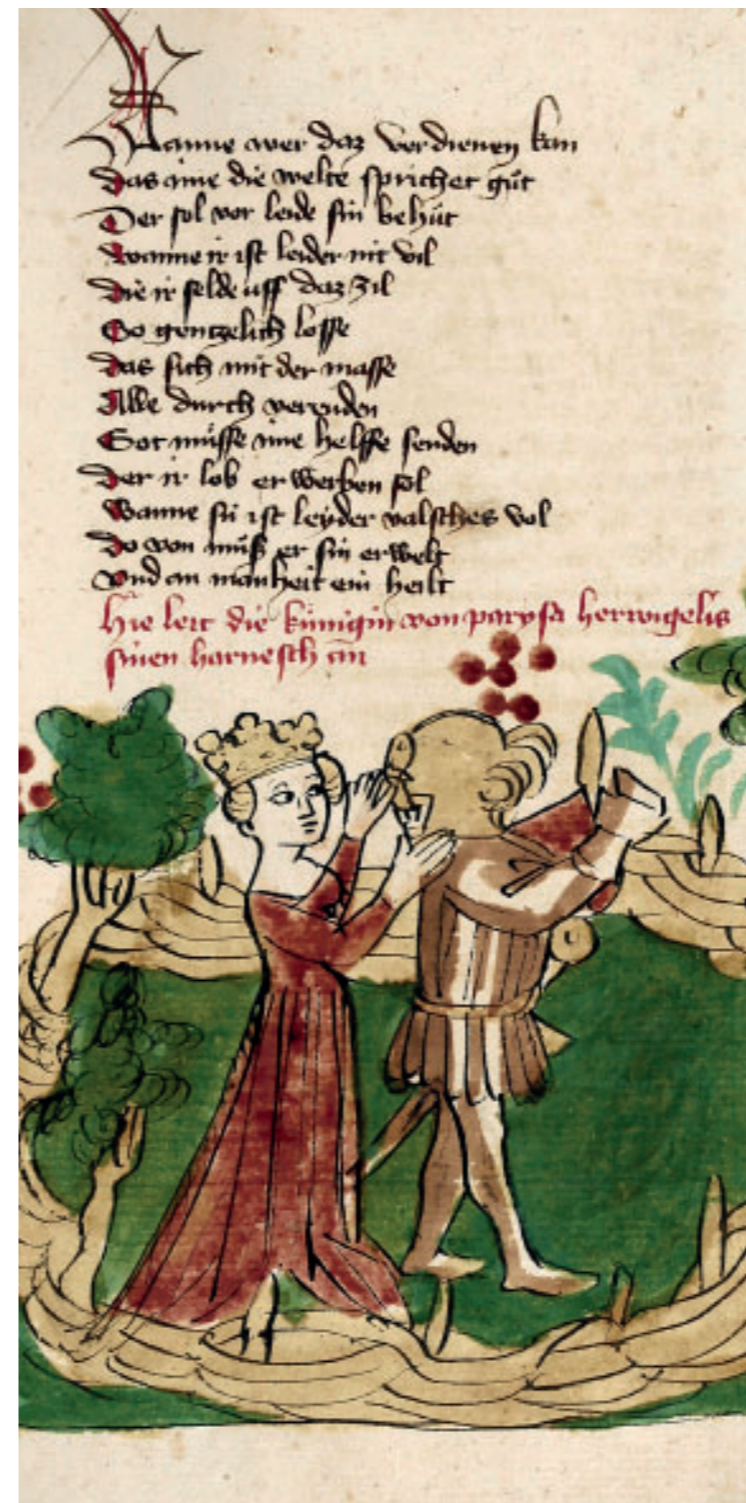 Wanne wer daz verdienen kan
Das ime die welte sprichet gůt
Der sol vor leide sin behůt
Wanne ir ist leider nit vil
Die ir selde uff daz zil
So gentzelich losse
Das sich mit der masse
Alle durch
Got můsse ime helffe senden
Der ir lob erwerben sol
Wanne sü ist leyder valsches vol
Do von můß er sin erwelt
Vnd an manheit ein helt
Hie leit die künigin von parysa herwigelis
sinen harnesch an